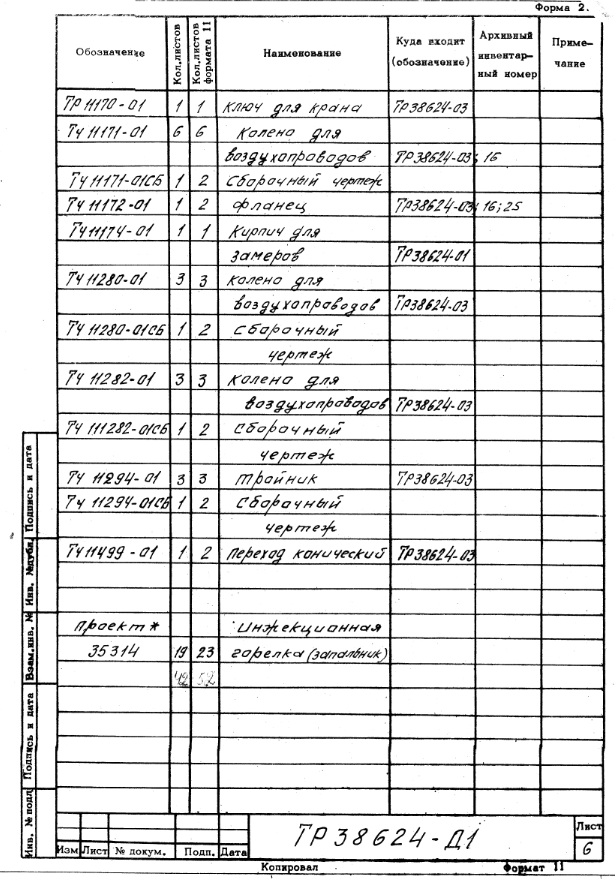 Форма 2.
Обозначение Кол.листов Кол.листов формата 11 Наименование Куда входит (обозначение) Архивный инвентарный номер Примечание
ТР 11170-01 1 1 Ключ для крана ТР38624-03
ТЧ 11171-01 6 6 Колено для
воздухопроводов ТР38624-03; 16
ТЧ 11171-01СБ 1 2 Сборочный чертеж
ТЧ 11172-01 1 2 Фланец ТР38624-03; 16; 25
ТЧ11174-01 1 1 Кирпич для
замеров ТР38624-01
ТЧ 11280-01 3 3 Колено для
воздухопроводов ТР38624-03
ТЧ 11280-01СБ 1 2 Сборочный
чертеж
ТЧ 11282-01 3 3 Колено для
воздухопроводов ТР38624-03
ТЧ 111282-01СБ 1 2 Сборочный
чертеж
ТЧ 11294-01 3 3 Тройник ТР38624-03
ТЧ 11294-01СБ 1 2 Сборочный
чертеж
ТЧ11499-01 1 2 Переход конический ТР38624-03
Проект* Инжекционная
35314 19 23 горелка (запальник)
42 52
Инв. № подл Подпись и дата Взам.инв. № Инв. №дубл. Подпись и дата
ТР38624-Д1
Лист
6
Изм Лист № докум. Подп. Дата
Копировал Формат 11